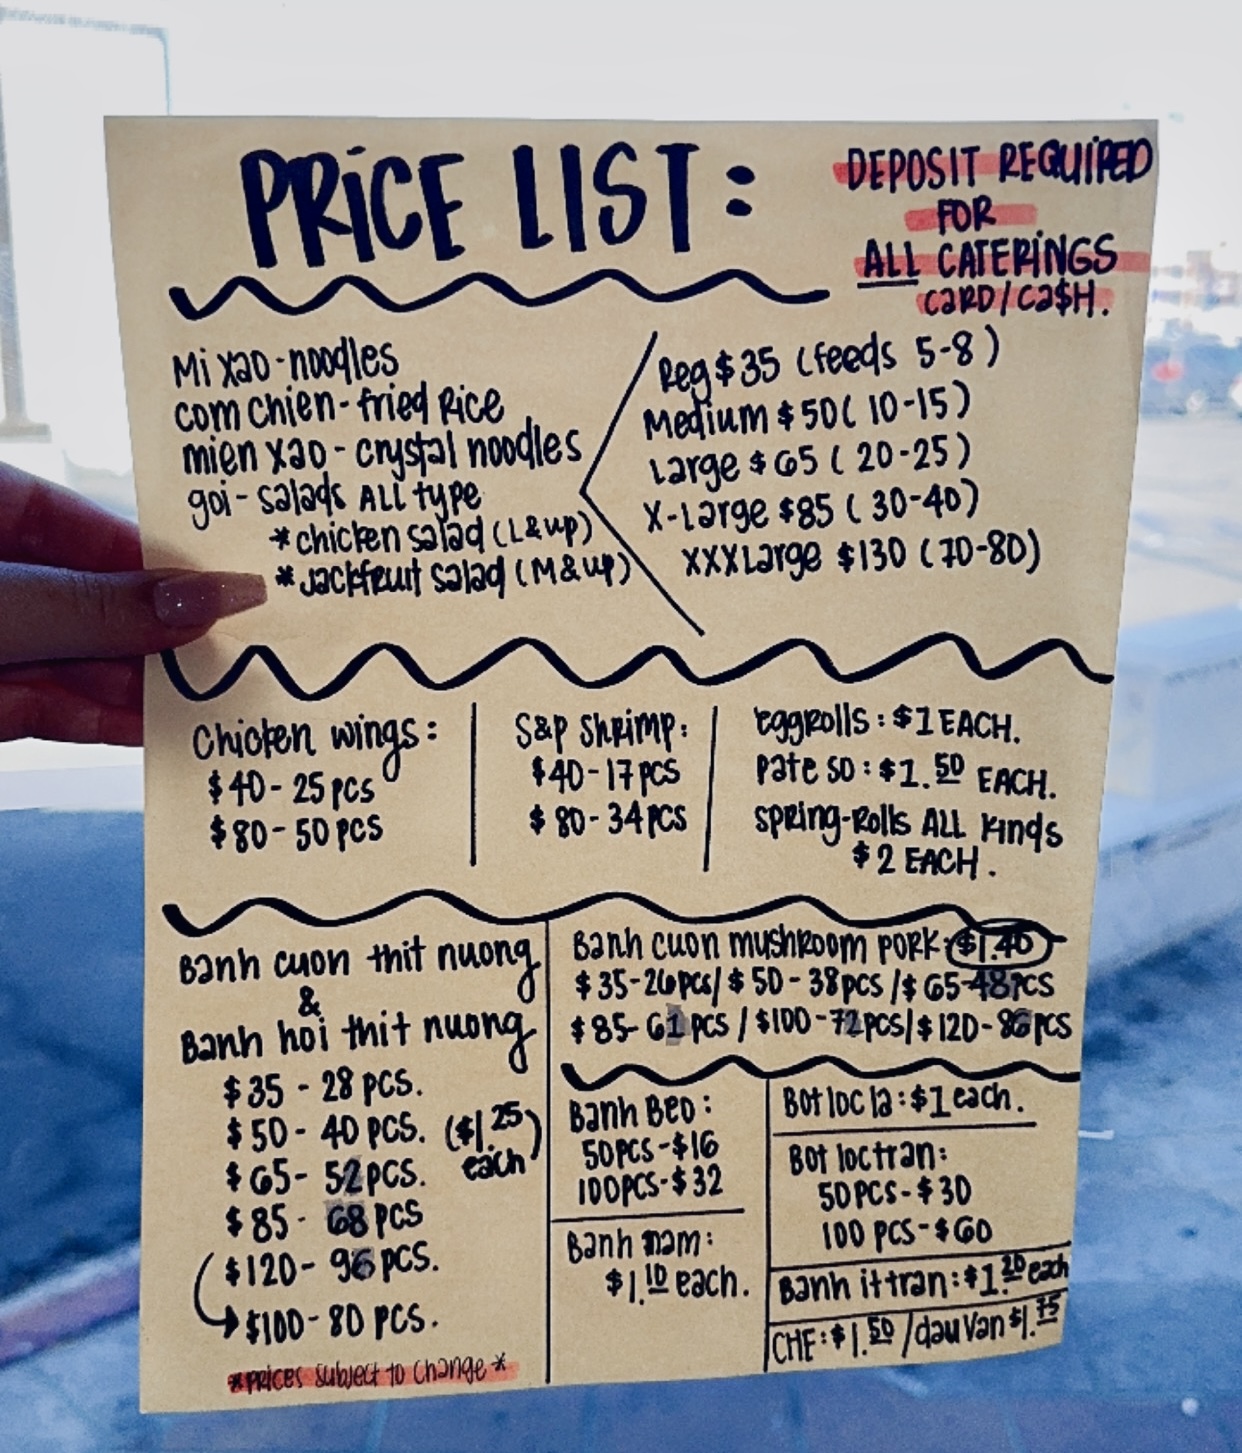 PRICE LIST:
DEPOSIT REQUIRED
FOR
ALL CATERINGS
CARD/CA$H.
Mi xao - noodles
com chien - fried Rice
mien xao - crystal noodles
goi - salads ALL type
*chicken salad (L & up)
*Jackfruit salad (M & up)
Reg $35 (feeds 5-8)
Medium $50 (10-15)
Large $65 (20-25)
X-Large $85 (30-40)
XXXLarge $130 (70-80)
Chicken wings:
$40 - 25 pcs
$80 - 50 pcs
S&P Shrimp:
$40 - 17 pcs
$80 - 34 pcs
eggrolls: $1 EACH.
Pate so: $1.50 EACH.
SPRING-Rolls ALL Kinds
$2 EACH.
Banh cuon thit nuong
&
Banh hoi thit nuong
$35 - 28 pcs.
$50 - 40 pcs.
$65 - 52 pcs.
$85 - 68 pcs
$120 - 96 pcs.
$100 - 80 pcs.
($1.25
each)
*PRICES subject to change*
Banh cuon mushroom PORK: $1.40
$35-26pcs/ $50-38pcs /$65-48pcs
$85-61 pcs / $100-72pcs/ $120-86pcs
Banh Beo:
50PCS-$16
100PCS-$32
Banh nam:
$1.10 each.
Bot loc la: $1 each.
Bot loc tran:
50 PCS-$30
100 PCS-$60
Banh it tran: $1.20 each
CHE: $1.50 / dau Van $1.75